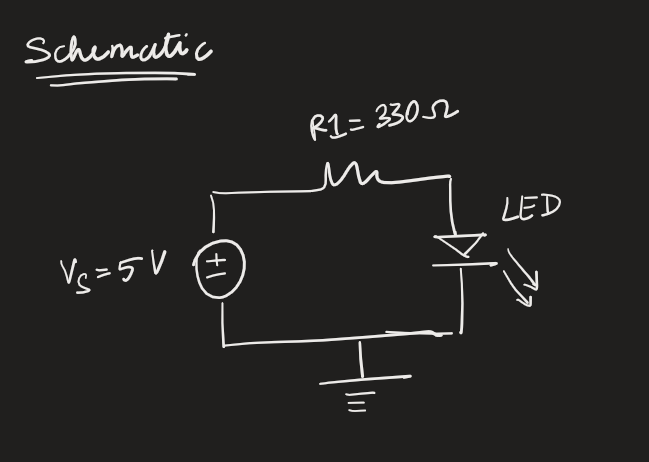 Schematic
R1 = 330Ω
LED
Vs = 5V